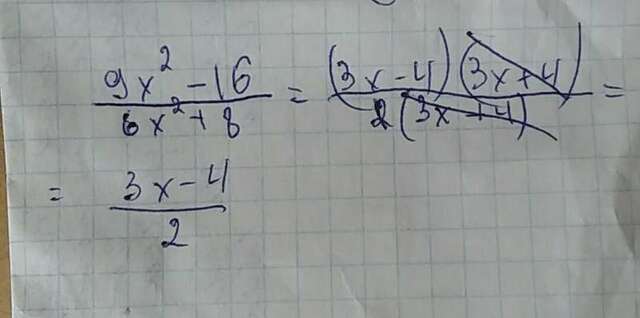 (9x² - 16)/(6x² + 8) = ((3x - 4)(3x + 4))/(2(3x + 4)) =
= (3x - 4)/2